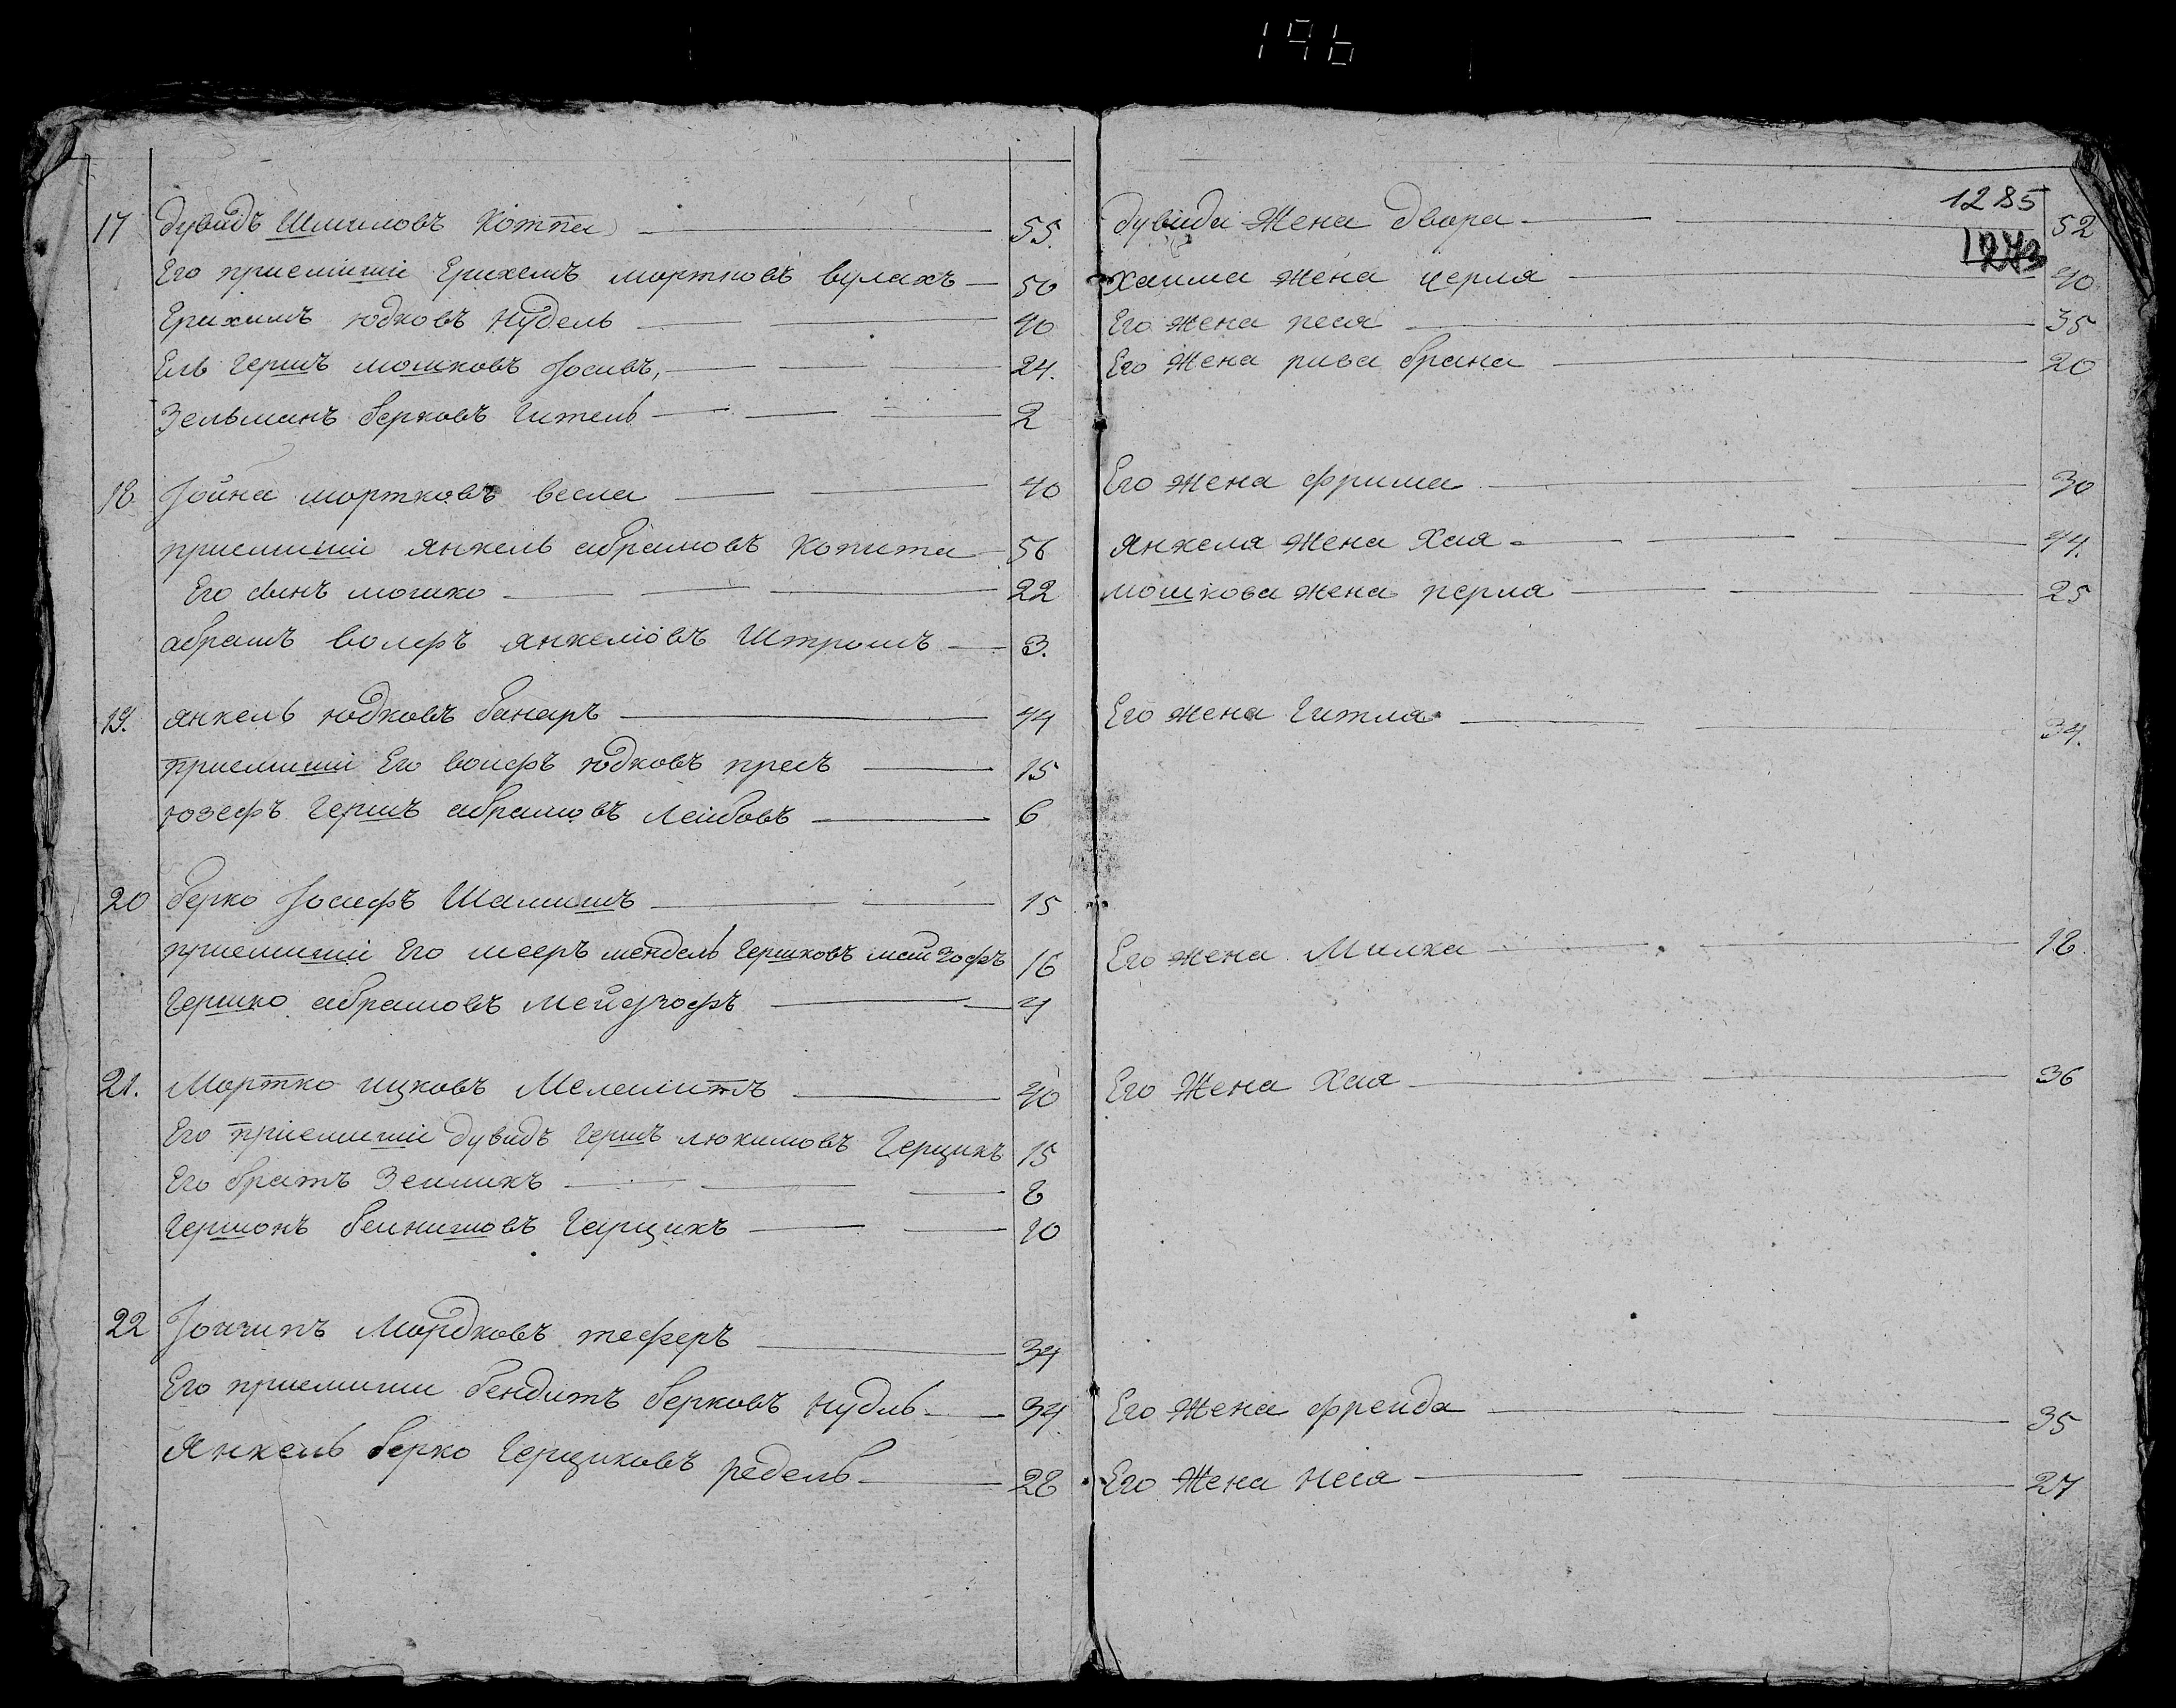 196
1285
1273
17 Дувидъ Шмиловъ Котта 55.
Его приемшiи Ерихемъ мортковъ вулахъ 50
Ерихимъ юдковъ нудель 40
Ель гершъ мошковъ Iосивъ, 24.
Зельманъ берковъ гитель 2
18 Iойна мортковъ весла 40
приемшiи янкель абрамовъ копита 56
Его сынъ мошко 22
абрамъ волфъ янкелiовъ Штромъ 3.
19. янкель юдковъ банаръ 44
приемшiи Его волфъ юдковъ пресъ 15
юзефъ гершъ абрамовъ лейбовъ 6
20 берко Iосифъ Шамишъ 15
приемшiи Его мееръ мендель гершковъ мейзофъ 16
гершко абрамовъ 4
21. Мортко ицковъ Меламитъ 40
Его приемшiи дувидъ гершъ люкимовъ герцикъ 15
Его братъ Зелмикъ 8
гершонъ бенишовъ герцикъ 10
22 Мордковъ теферъ 34
Его приемшии бендитъ берковъ нудль 34.
Янкель берко герциковъ редель 28
дувида Жена двора 52
Хаима жена черля 40
Его жена песя 35
Его жена рива брана 20
Его жена фрима 30
янкеля жена Хая 44.
мошкова жена перля 25
Его жена гитла 34.
Его жена Милка 18
Его Жена Хая 36
Его жена фрейда 35
Его жена неся 27